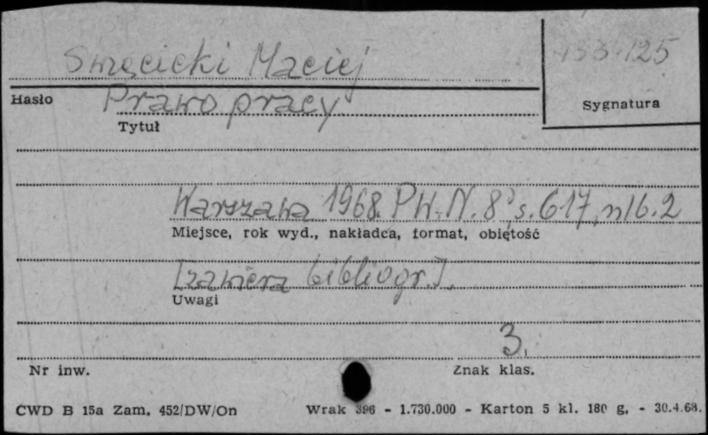 Święcicki Maciej
133.125
Hasło
Prawo pracy
Sygnatura
Tytuł
Warszawa 1968. PW.N. 8°, s. 617, nlb. 2
Miejsce, rok wyd., nakładca, format, objętość
[zawiera bibliogr.].
Uwagi
3.
Nr inw.
Znak klas.
CWD B 15a Zam. 452/DW/On
Wrak 396 - 1.730.000 - Karton 5 kl. 180 g. - 30.4.68.